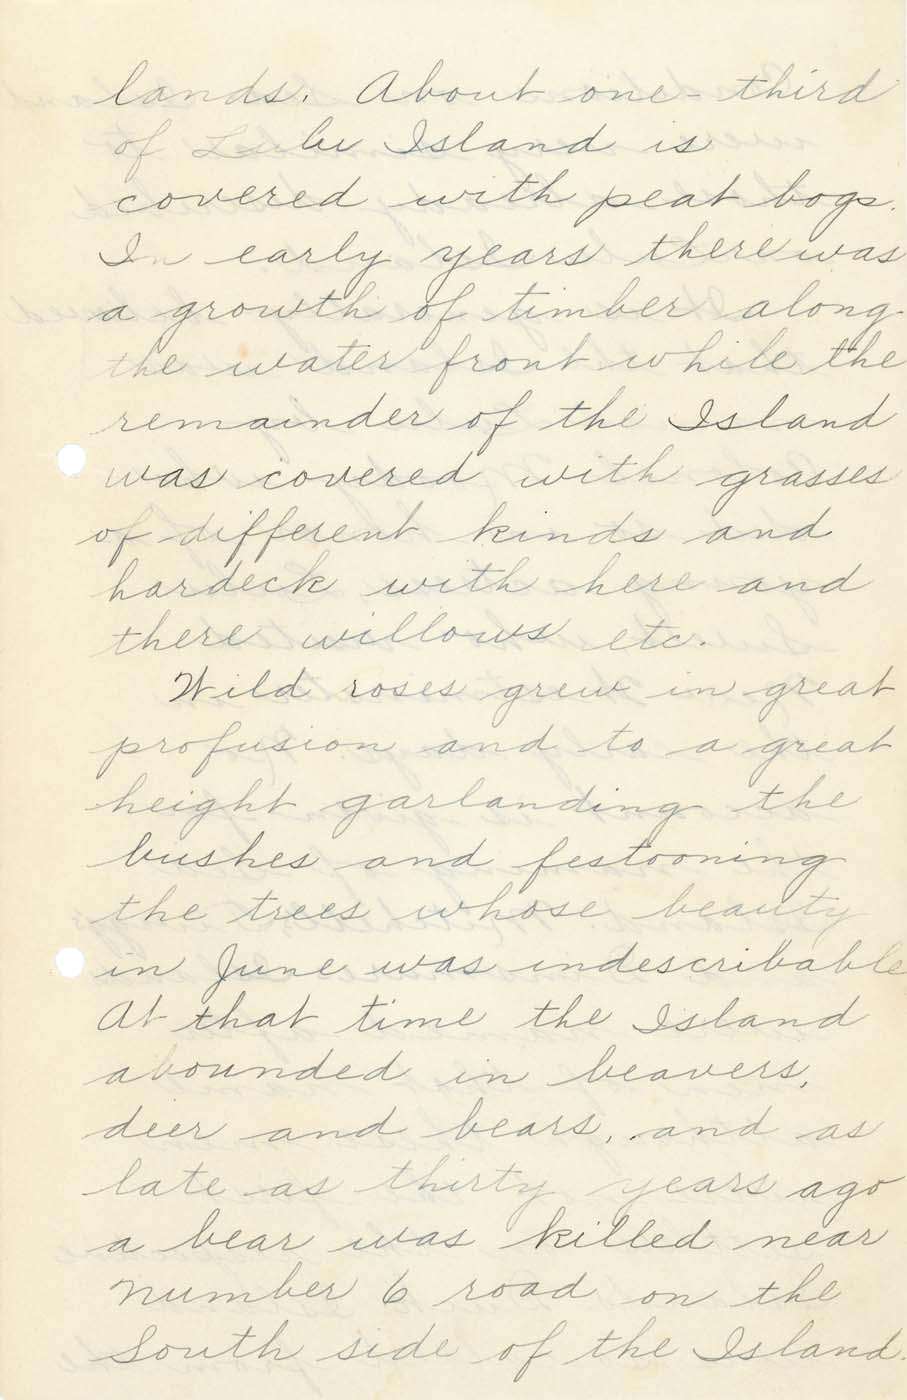 lands. About one-third
of Lulu Island is
covered with peat bogs.
In early years there was
a growth of timber along
the water front while the
remainder of the Island
was covered with grasses
of different kinds and
hardeck with here and
there willows etc.
Wild roses grew in great
profusion and to a great
height garlanding the
bushes and festooning
the trees whose beauty
in June was indescribable
At that time the Island
abounded in beavers,
deer and bears, and as
late as thirty years ago
a bear was killed near
Number 6 road on the
South side of the Island.